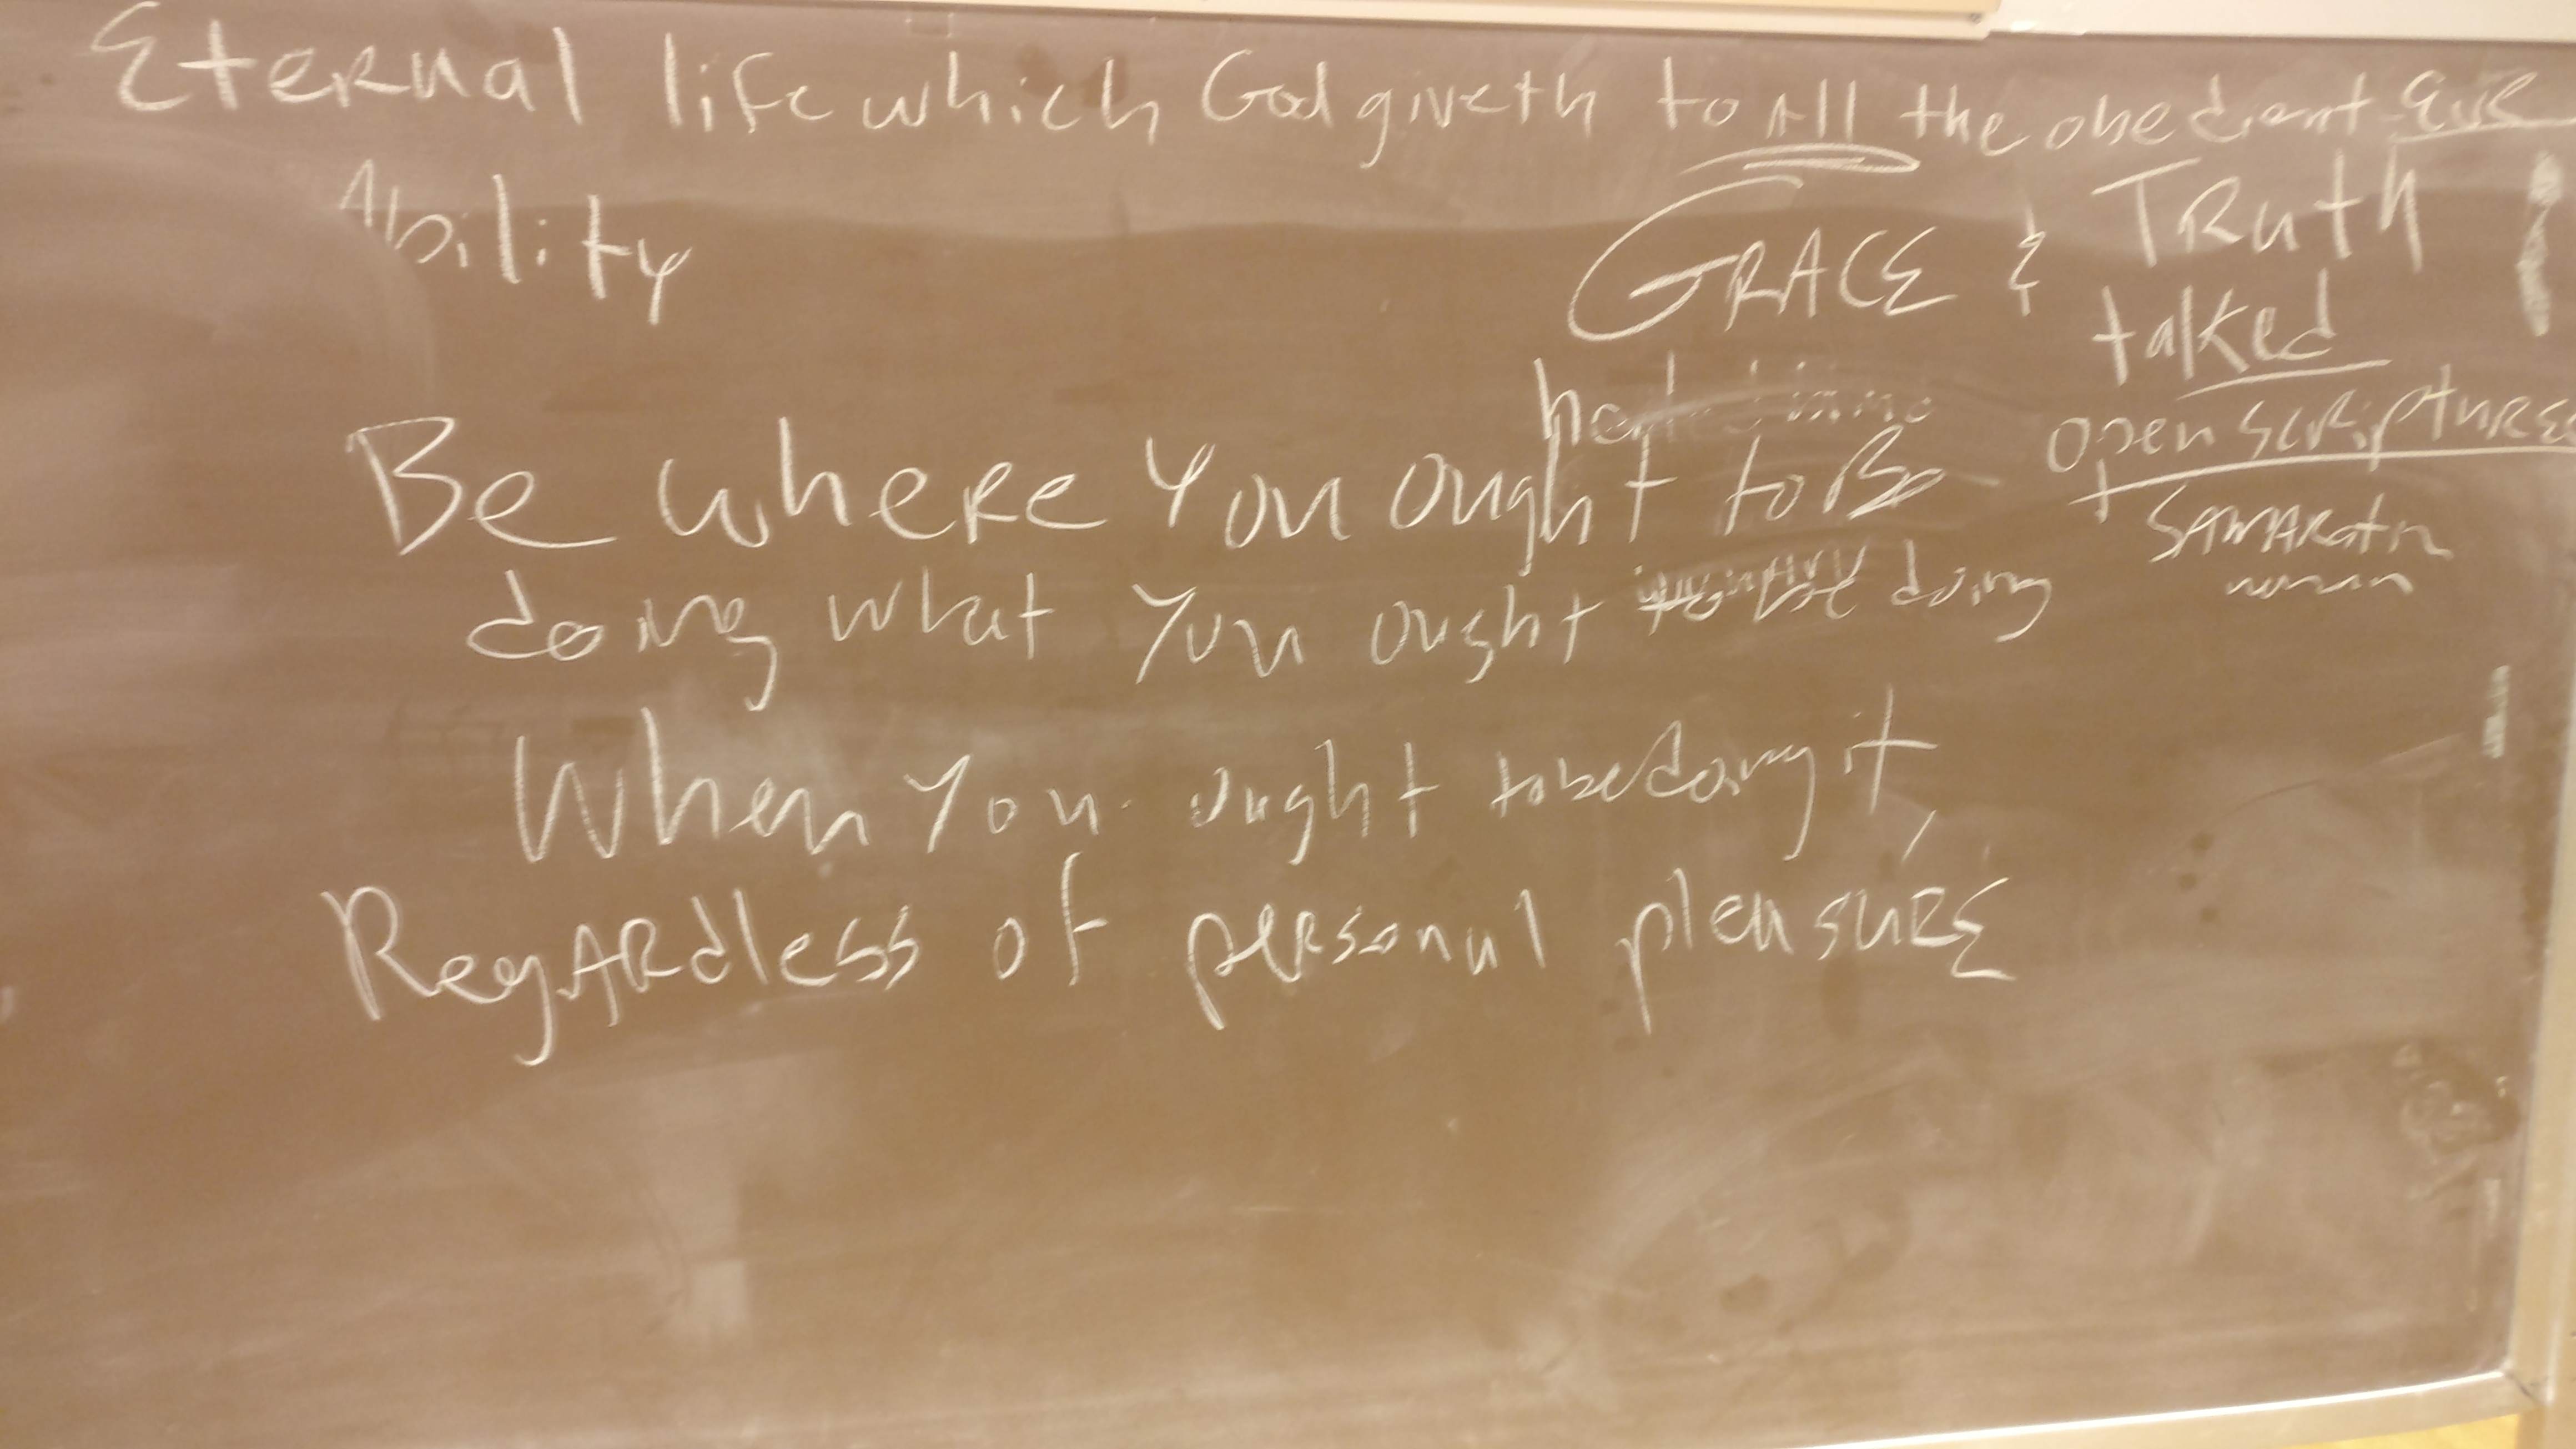 Eternal life which God giveth to All the obedient - Eve
Ability
GRACE & TRuth
talked
open scriptures
Be where You ought to Be
SAMARatn
woman
doing what You ought doing
When You ought to be doing it,
RegARdless of personal pleasure